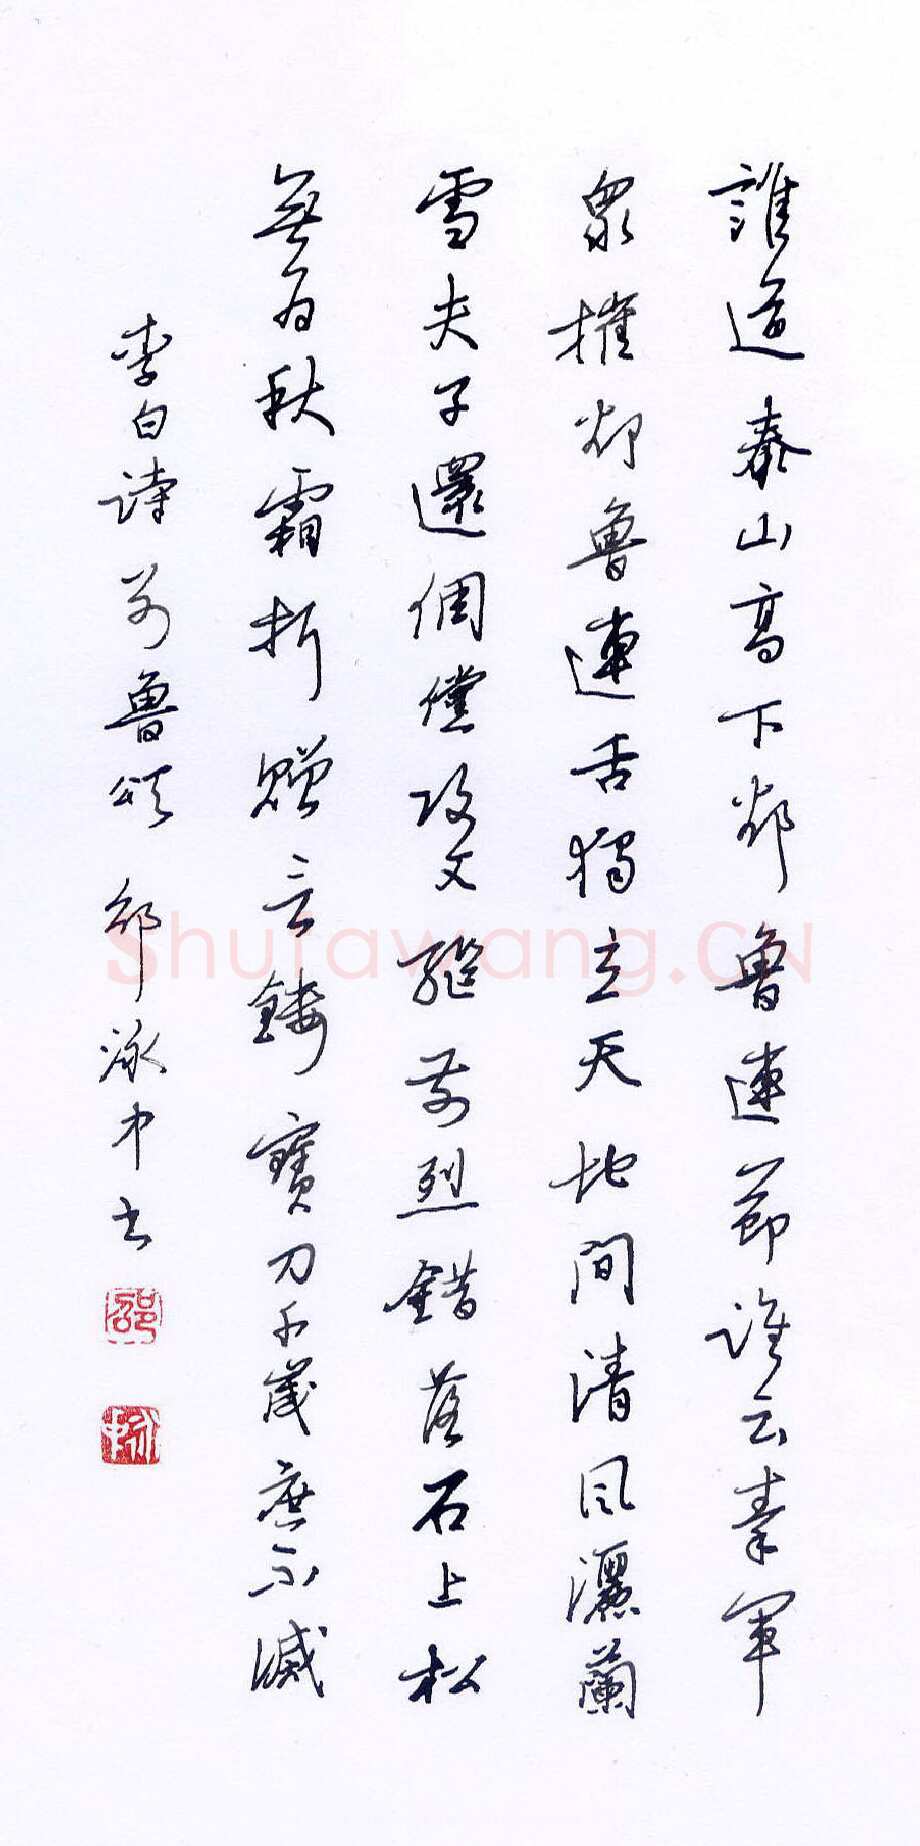 誰道泰山高下却魯連節誰云秦軍
眾摧却魯連舌獨立天地間清風灑蘭
雪夫子還倜儻攻文繼前烈錯落石上松
無為秋霜折贈言鏤寶刀千歲庶不滅
李白詩別魯頌 邵泳中书
邵
Shufawang.CN